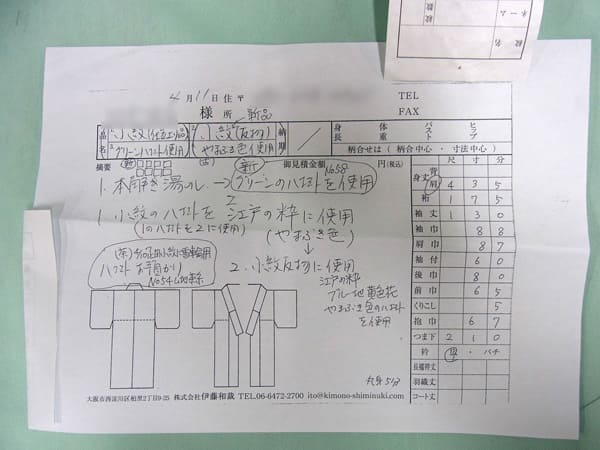 総数
名
ネーム
4月11日 住〒
TEL
様 所 新品
FAX
品名
1.小紋(仕立上り品)
グリーンハカケ使用
2.小紋(反物)
やまぶき色使用
納期
身長
体重
バスト
ヒップ
柄合せは(柄合中心・寸法中心)
摘要
新
御見積金額
円(税込)
尺 寸 分
1.本開き湯のし→グリーンのハカケを使用
No58
1.小紋のハカケを江戸の粋に使用
(1のハカケを2に使用)
(やまぶき色)
ハカケお預かり
2.小紋反物に使用
江戸の粋
ブルー地黄色花
やまぶき色のハカケ
を使用
身丈 背 肩 4 3 5
裄 1 7 5
袖丈 1 3 0
袖巾 8 8
肩巾 8 7
袖付 6 0
後巾 8 0
前巾 6 5
くりこし 5
抱巾 6 7
つま下 2 1 0
衿 ・バチ
長襦袢丈
羽織丈
コート丈
大阪市西淀川区柏里2丁目9-25 株式会社伊藤和裁 TEL.06-6472-2700 ito@kimono-shiminuki.com